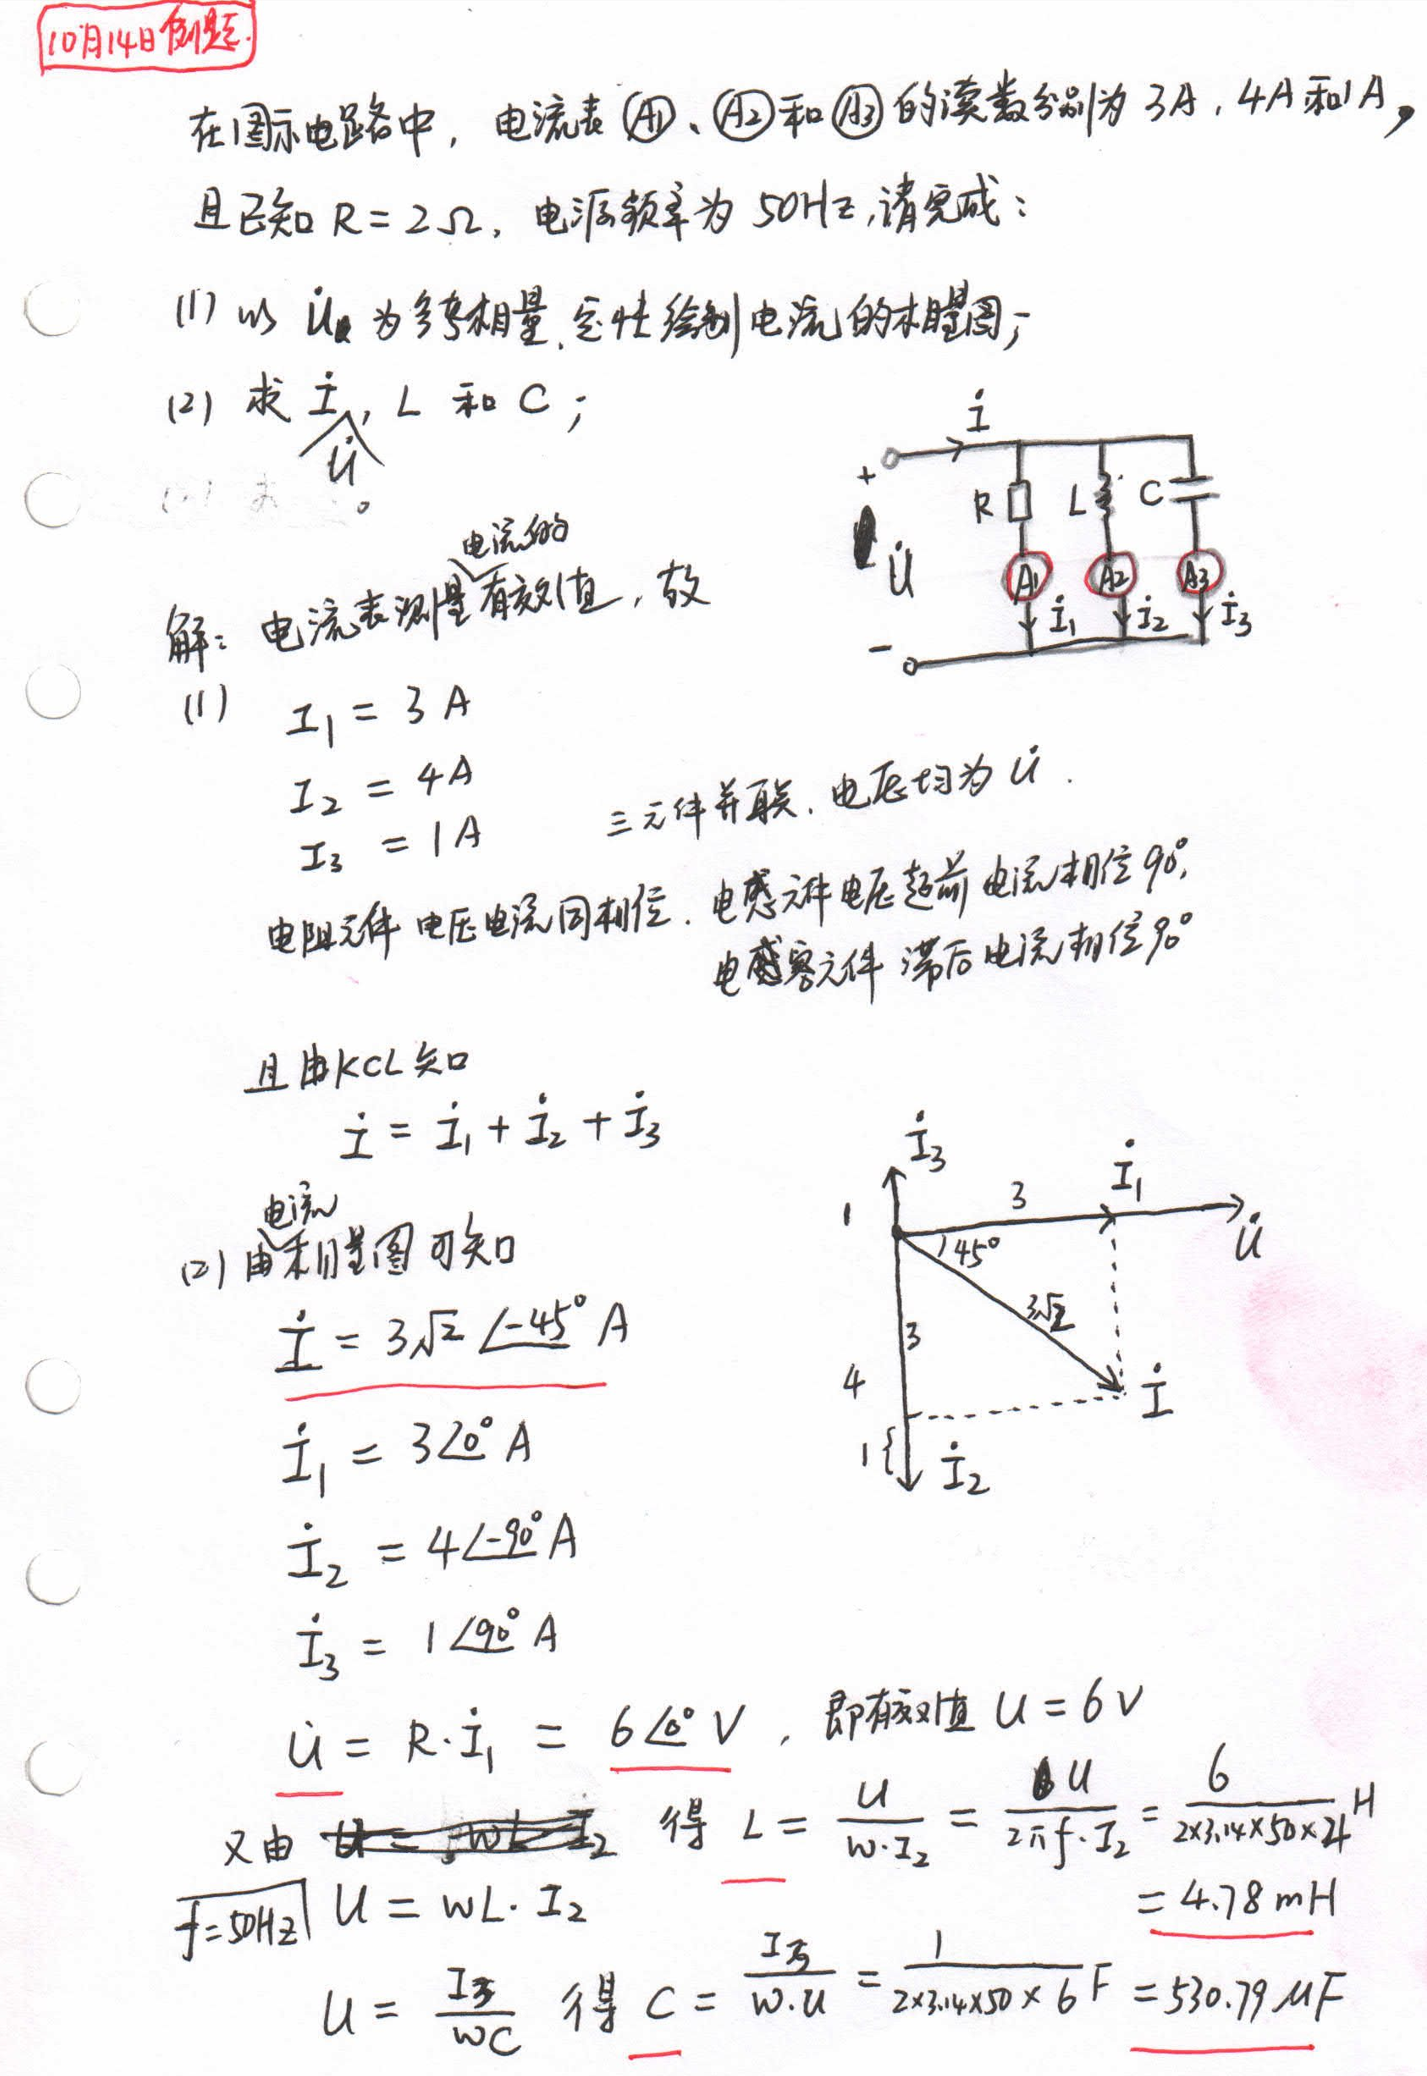 10月14日例题.
在图示电路中,电流表 A1、A2 和 A3 的读数分别为 3A,4A和1A,
且已知 R=2Ω,电源频率为 50HZ,请完成:
(1) 以 U̇ 为参考相量,定性绘制电流的相量图;
(2) 求 İ, U̇, L 和 C;
İ
+
R
L
C
U̇
A1
A2
A3
İ₁
İ₂
İ₃
-
解:电流表测量电流的有效值,故
(1)
I₁ = 3 A
I₂ = 4A
I₃ = 1A
三元件并联,电压均为 U̇.
电阻元件电压电流同相位.电感元件电压超前电流相位90°,
电容元件滞后电流相位90°
且由KCL知
İ = İ₁ + İ₂ + İ₃
(2) 由电流相量图可知
İ₃
İ₁
1
3
U̇
45°
3√2
3
4
İ
1{
İ₂
İ = 3√2 ∠-45° A
İ₁ = 3∠0° A
İ₂ = 4∠-90° A
İ₃ = 1∠90° A
U̇ = R·İ₁ = 6∠0° V,即有效值 U=6V
又由 得 L = U/(W·I₂) = U/(2πf·I₂) = 6/(2×3.14×50×4) H
f=50HZ U = WL·I₂ = 4.78 mH
U = I₃/(WC) 得 C = I₃/(W·U) = 1/(2×3.14×50×6) F = 530.79 μF